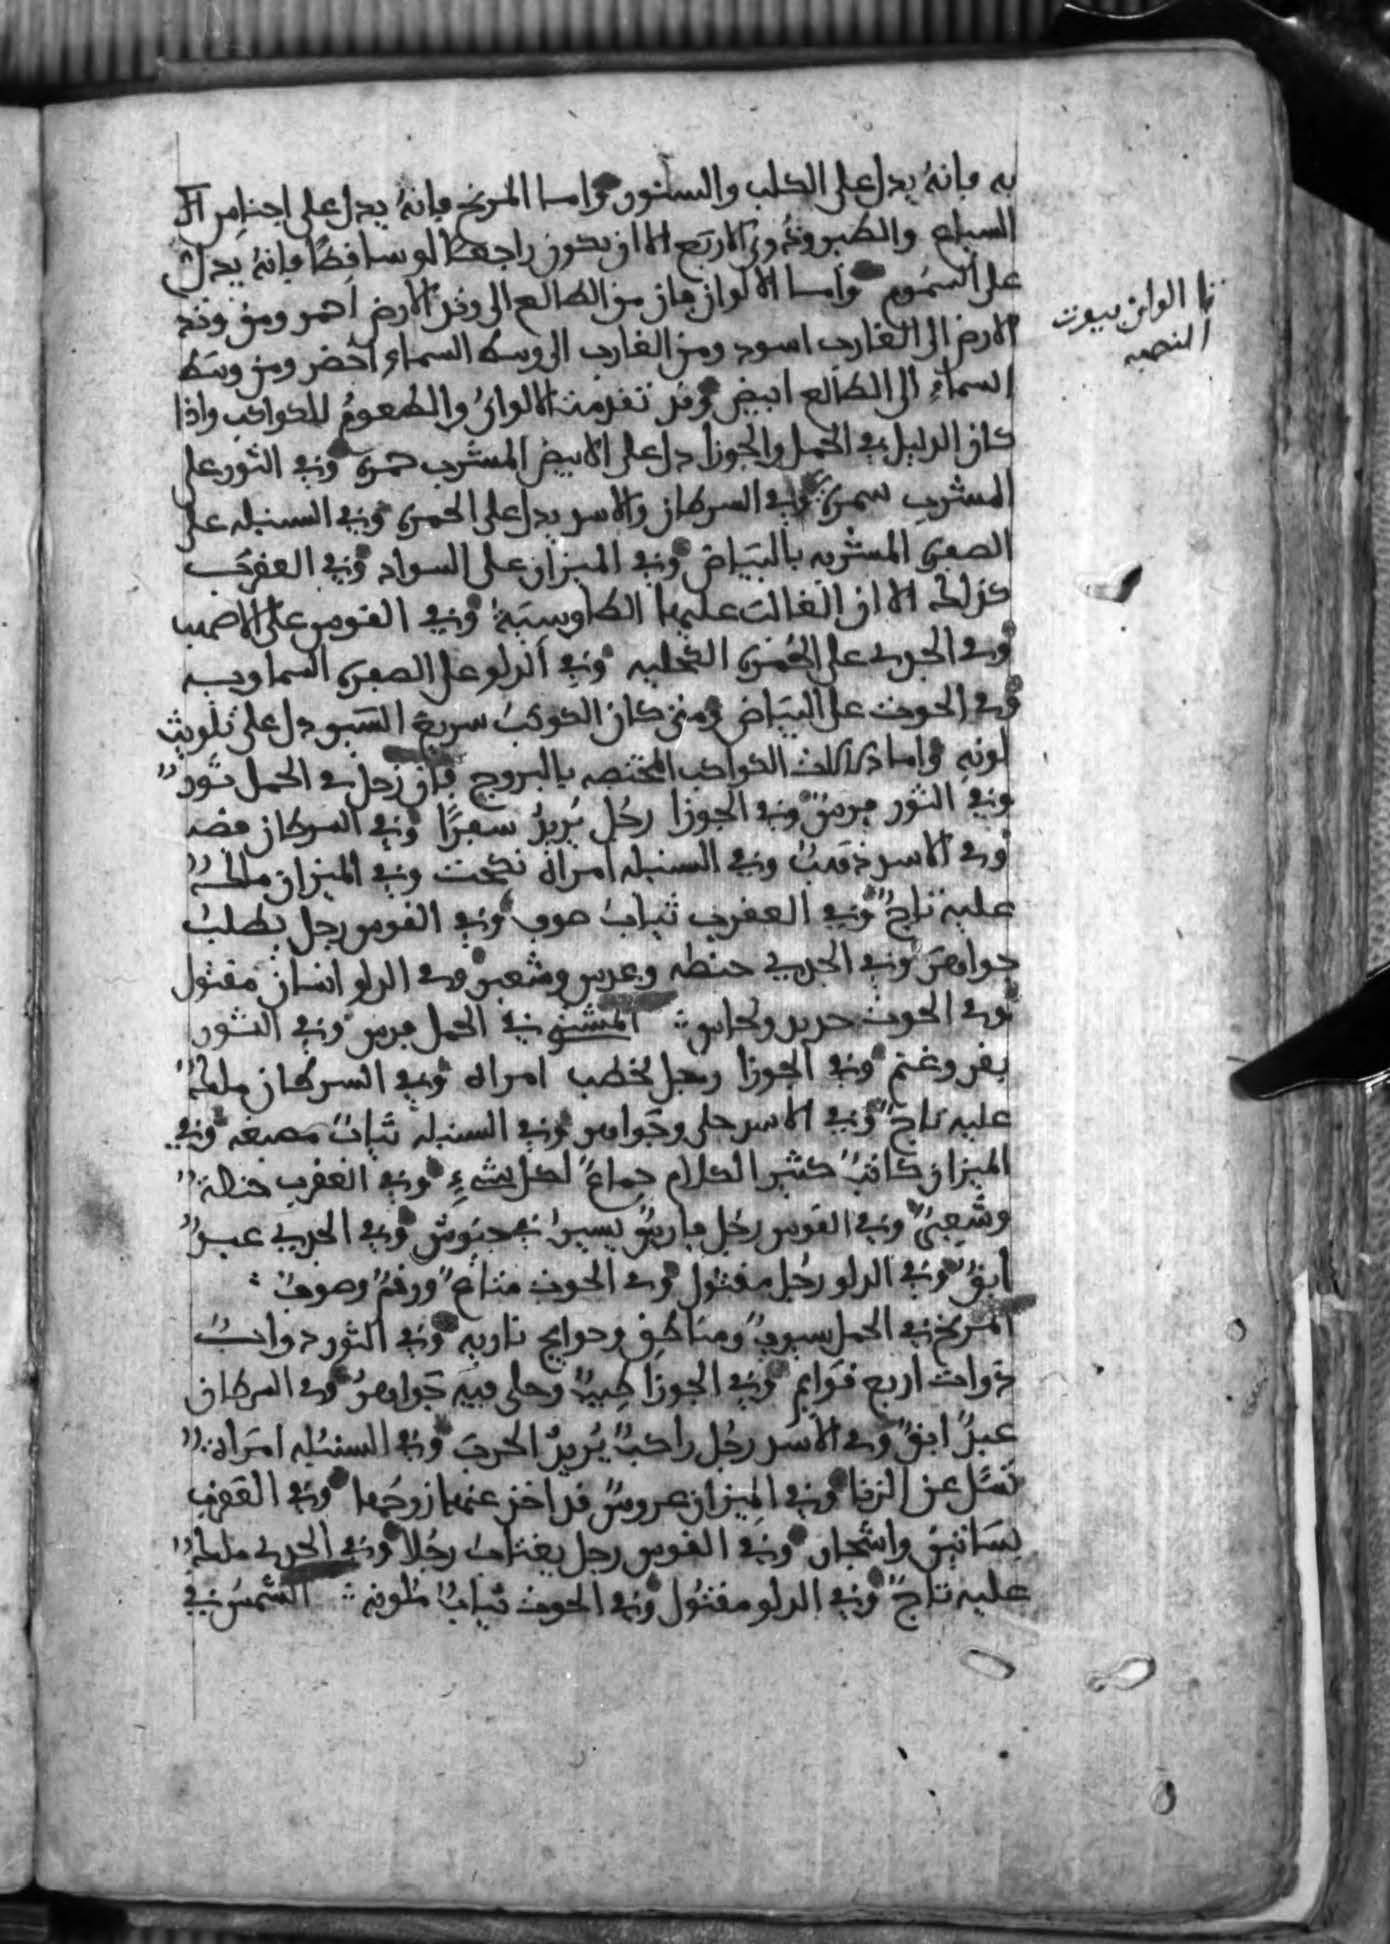 به فإنه يدل على الكلب والسنور وامـا المريخ فإنه يدل على اجناس
السباع والطير وذوى الاربع الا ان يكون راجعًا او ساقطًا فإنه يدل
على السموم وأمـا الالوان فإن من الطالع الى وتد الأرض احمر ومن وتد
الارض الى الغارب اسود ومن الغارب الى وسط السماء اخضر ومن وسط
السماء الى الطالع ابيض وقد تقدمت الالوان والطعوم للكواكب واذا
كان الدليل في الحمل والجوزا دل على الابيض المشرب حمرة وفي الثور على
المشرب سمرة وفي السرطان والاسد يدل على الحمرة وفي السنبله على
الصفرة المشربه بالبياض وفي الميزان على السواد وفي العقرب
كذلك الا ان الغالب عليها الطاوسية وفي القوس على الاصهب
وفي الجدي على الحمرة الكحليه وفي الدلو على الصفرة السماويـه
وفي الحوت على البياض ومتى كان الكوكب سريع السير دل على تلويث
لونه واما دلالات الكواكب المختصه بالبروج فإن زحل في الحمل ثور
وفي الثور فرس وفي الجوزا رجل يريد سفرًا وفي السرطان فضه
وفي الاسد ذهب وفي السنبله امراة نكحت وفي الميزان ملك
عليه تاج وفي العقرب ثياب صوف وفي القوس رجل يطلب
جواهر وفي الجدي حنطه وعدس وشعير وفي الدلو انسان مقتول
وفي الحوت حديد ونحاس المشتري في الحمل فرس وفي الثور
بقر وغنم وفي الجوزا رجل يخطب امراه وفي السرطان ملك
عليه تاج وفي الاسد حلى وجواهر وفي السنبلة ثياب مصبغه وفي
الميزان كاتب كثير الكلام جماع لكل شيء وفي العقرب حنطة
وشعير وفي القوس رجل فارس يسير في جيوش وفي الجدي عبد
ابق وفي الدلو رجل مقتول وفي الحوت متاع ورقم وصوف
المريخ في الحمل سيوف وسكاكين وحوايج ناريه وفي الثور دواب
ذوات اربع قوايم وفي الجوزا طيب وحلى فيه جواهر وفي السرطان
عبد ابق وفي الاسد رجل راكب يريد الحرب وفي السنبله امراة
تسئل عن الزنا وفي الميزان عروس قد اخذ عنها زوجها وفي العقرب
بساتين واشجار وفي القوس رجل يغتاب رجلا وفي الجدي ملك
عليه تاج وفي الدلو مقتول وفي الحوت ثياب ملونه الشمس في
الوان بيوت
النصبه